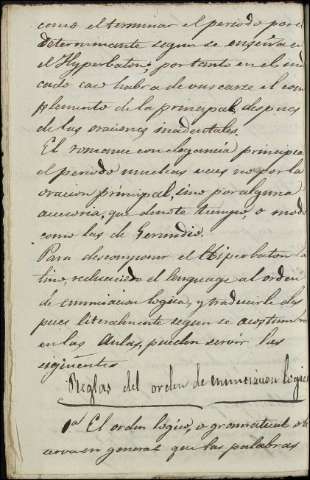 como el terminar el periodo por el
determinante segun se enseña en
el Hyperbaton, por tanto en el in
cado cac habra de buscarse el com
plemento de la principal despues
de las oraciones incidentales.
El romance con elegancia principia
el periodo muchas veces no por la
oracion principal, sino por alguna
accesoria, que denote tiempo, o modo
como las de Gerundio.
Para descomponer el Hiperbaton la
tino, reduciendo el lenguage al orden
de enunciacion logica, y traducirle des
pues literalmente segun se acostumbra
en las Aulas, pueden servir las
siguientes
Reglas del orden de enunciacion logica
1ª El orden logico, o gramatical ob
serva en general que las palabras